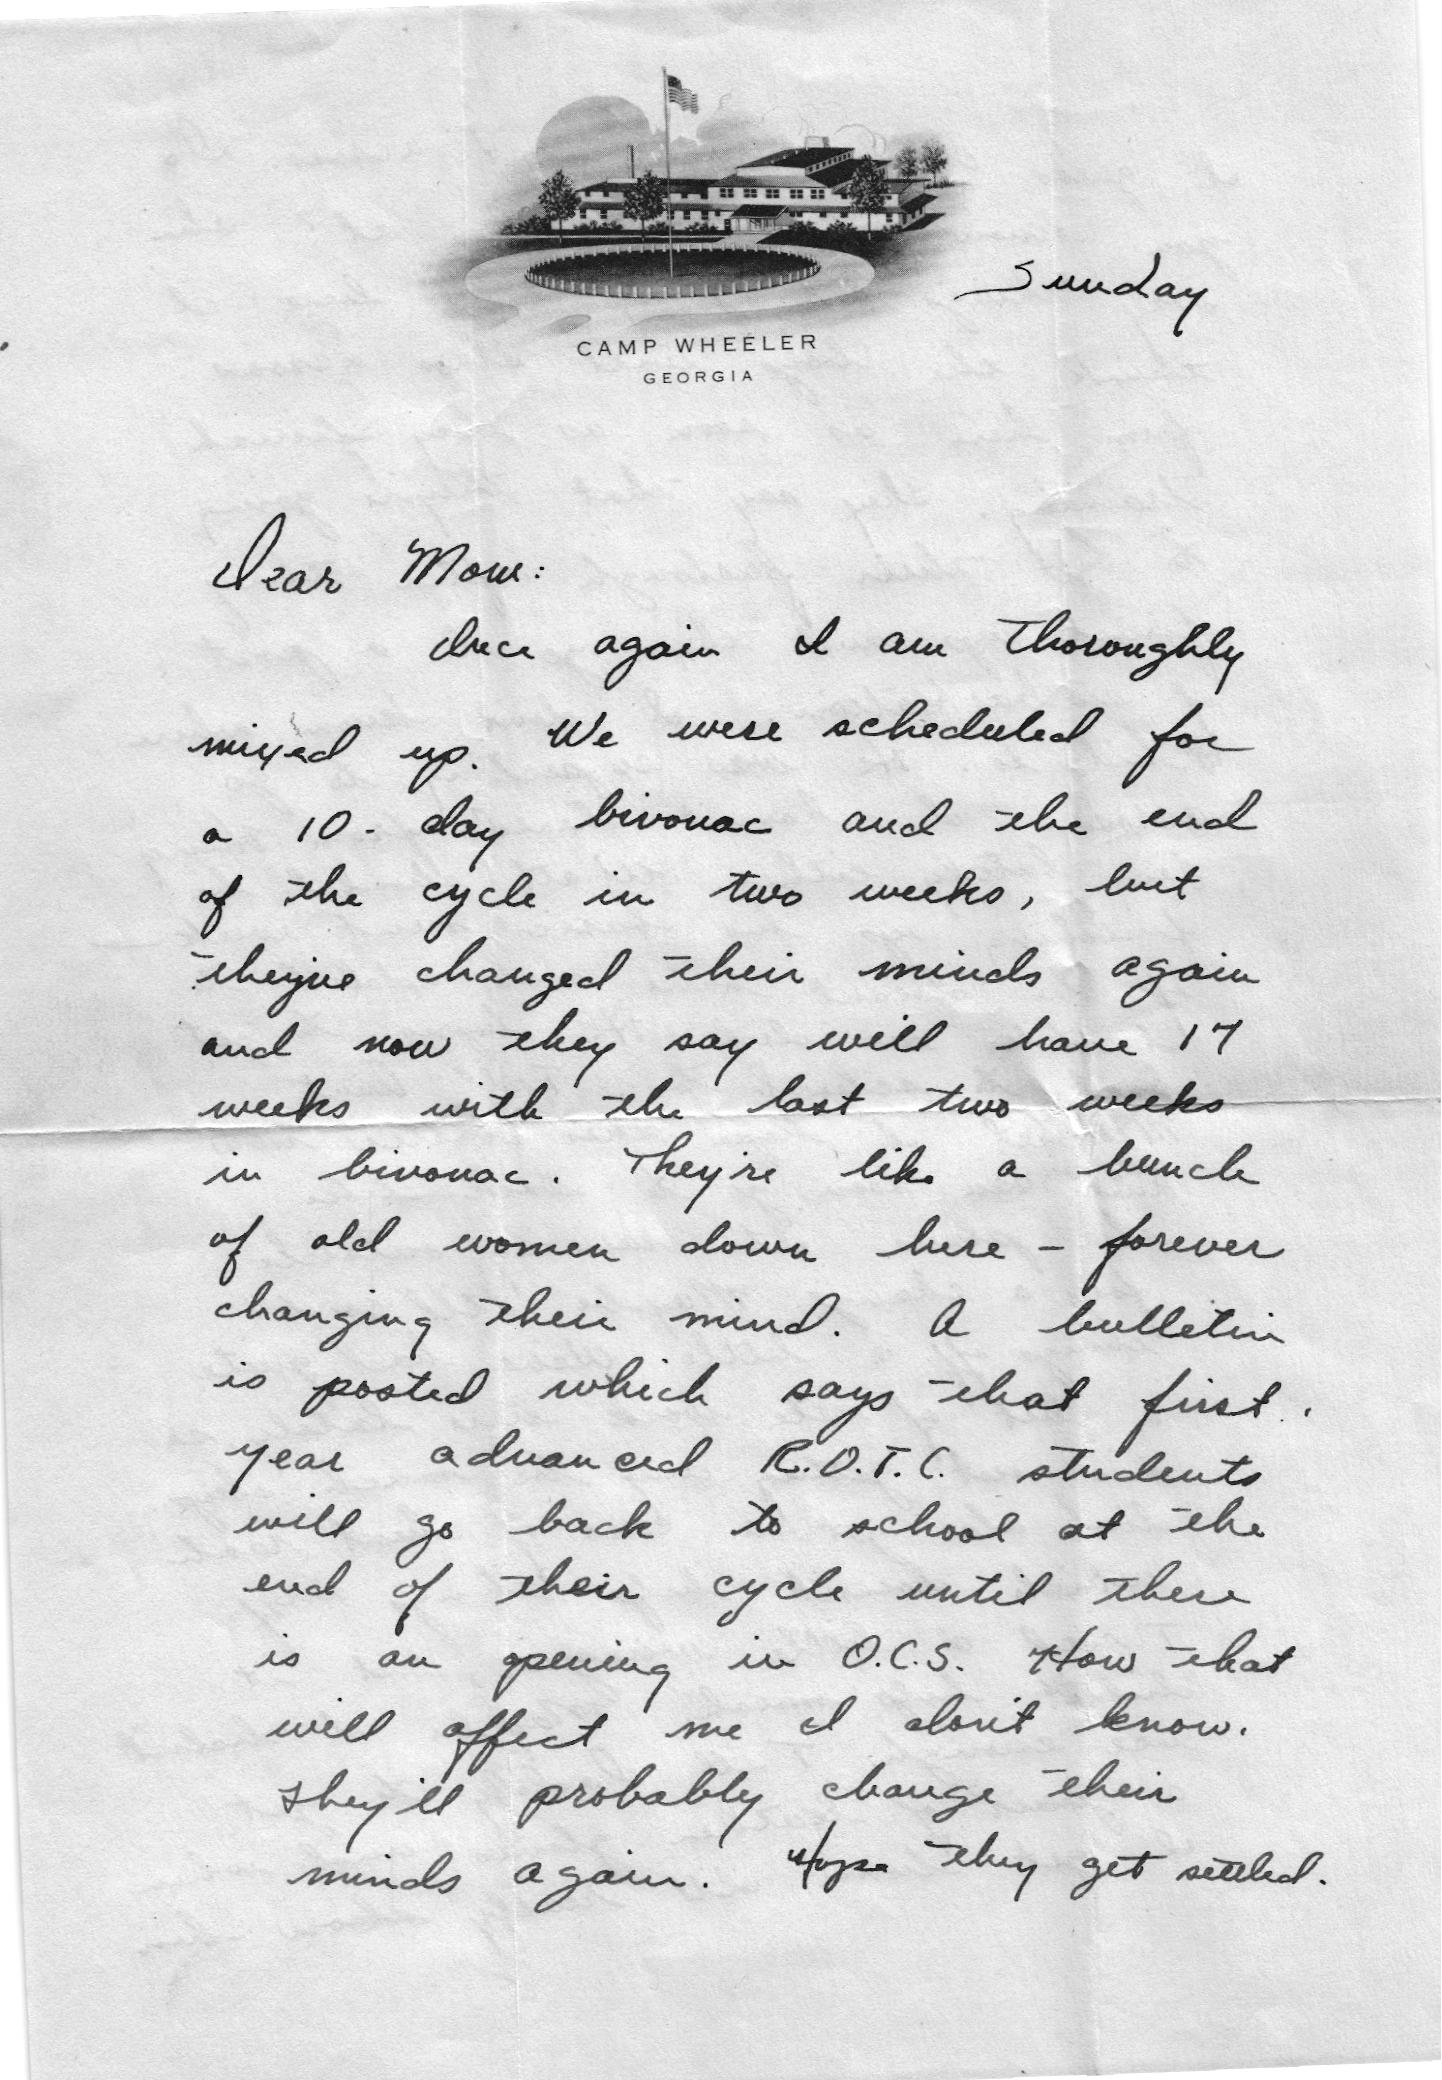 Sunday
CAMP WHEELER
GEORGIA
Dear Mom:
Once again I am thoroughly
mixed up. We were scheduled for
a 10-day bivouac and the end
of the cycle in two weeks, but
they've changed their minds again
and now they say will have 17
weeks with the last two weeks
in bivouac. They're like a bunch
of old women down here - forever
changing their mind. A bulletin
is posted which says that first
year advanced R.O.T.C. students
will go back to school at the
end of their cycle until there
is an opening in O.C.S. How that
will affect me I don't know.
They'll probably change their
minds again. Hope they get settled.